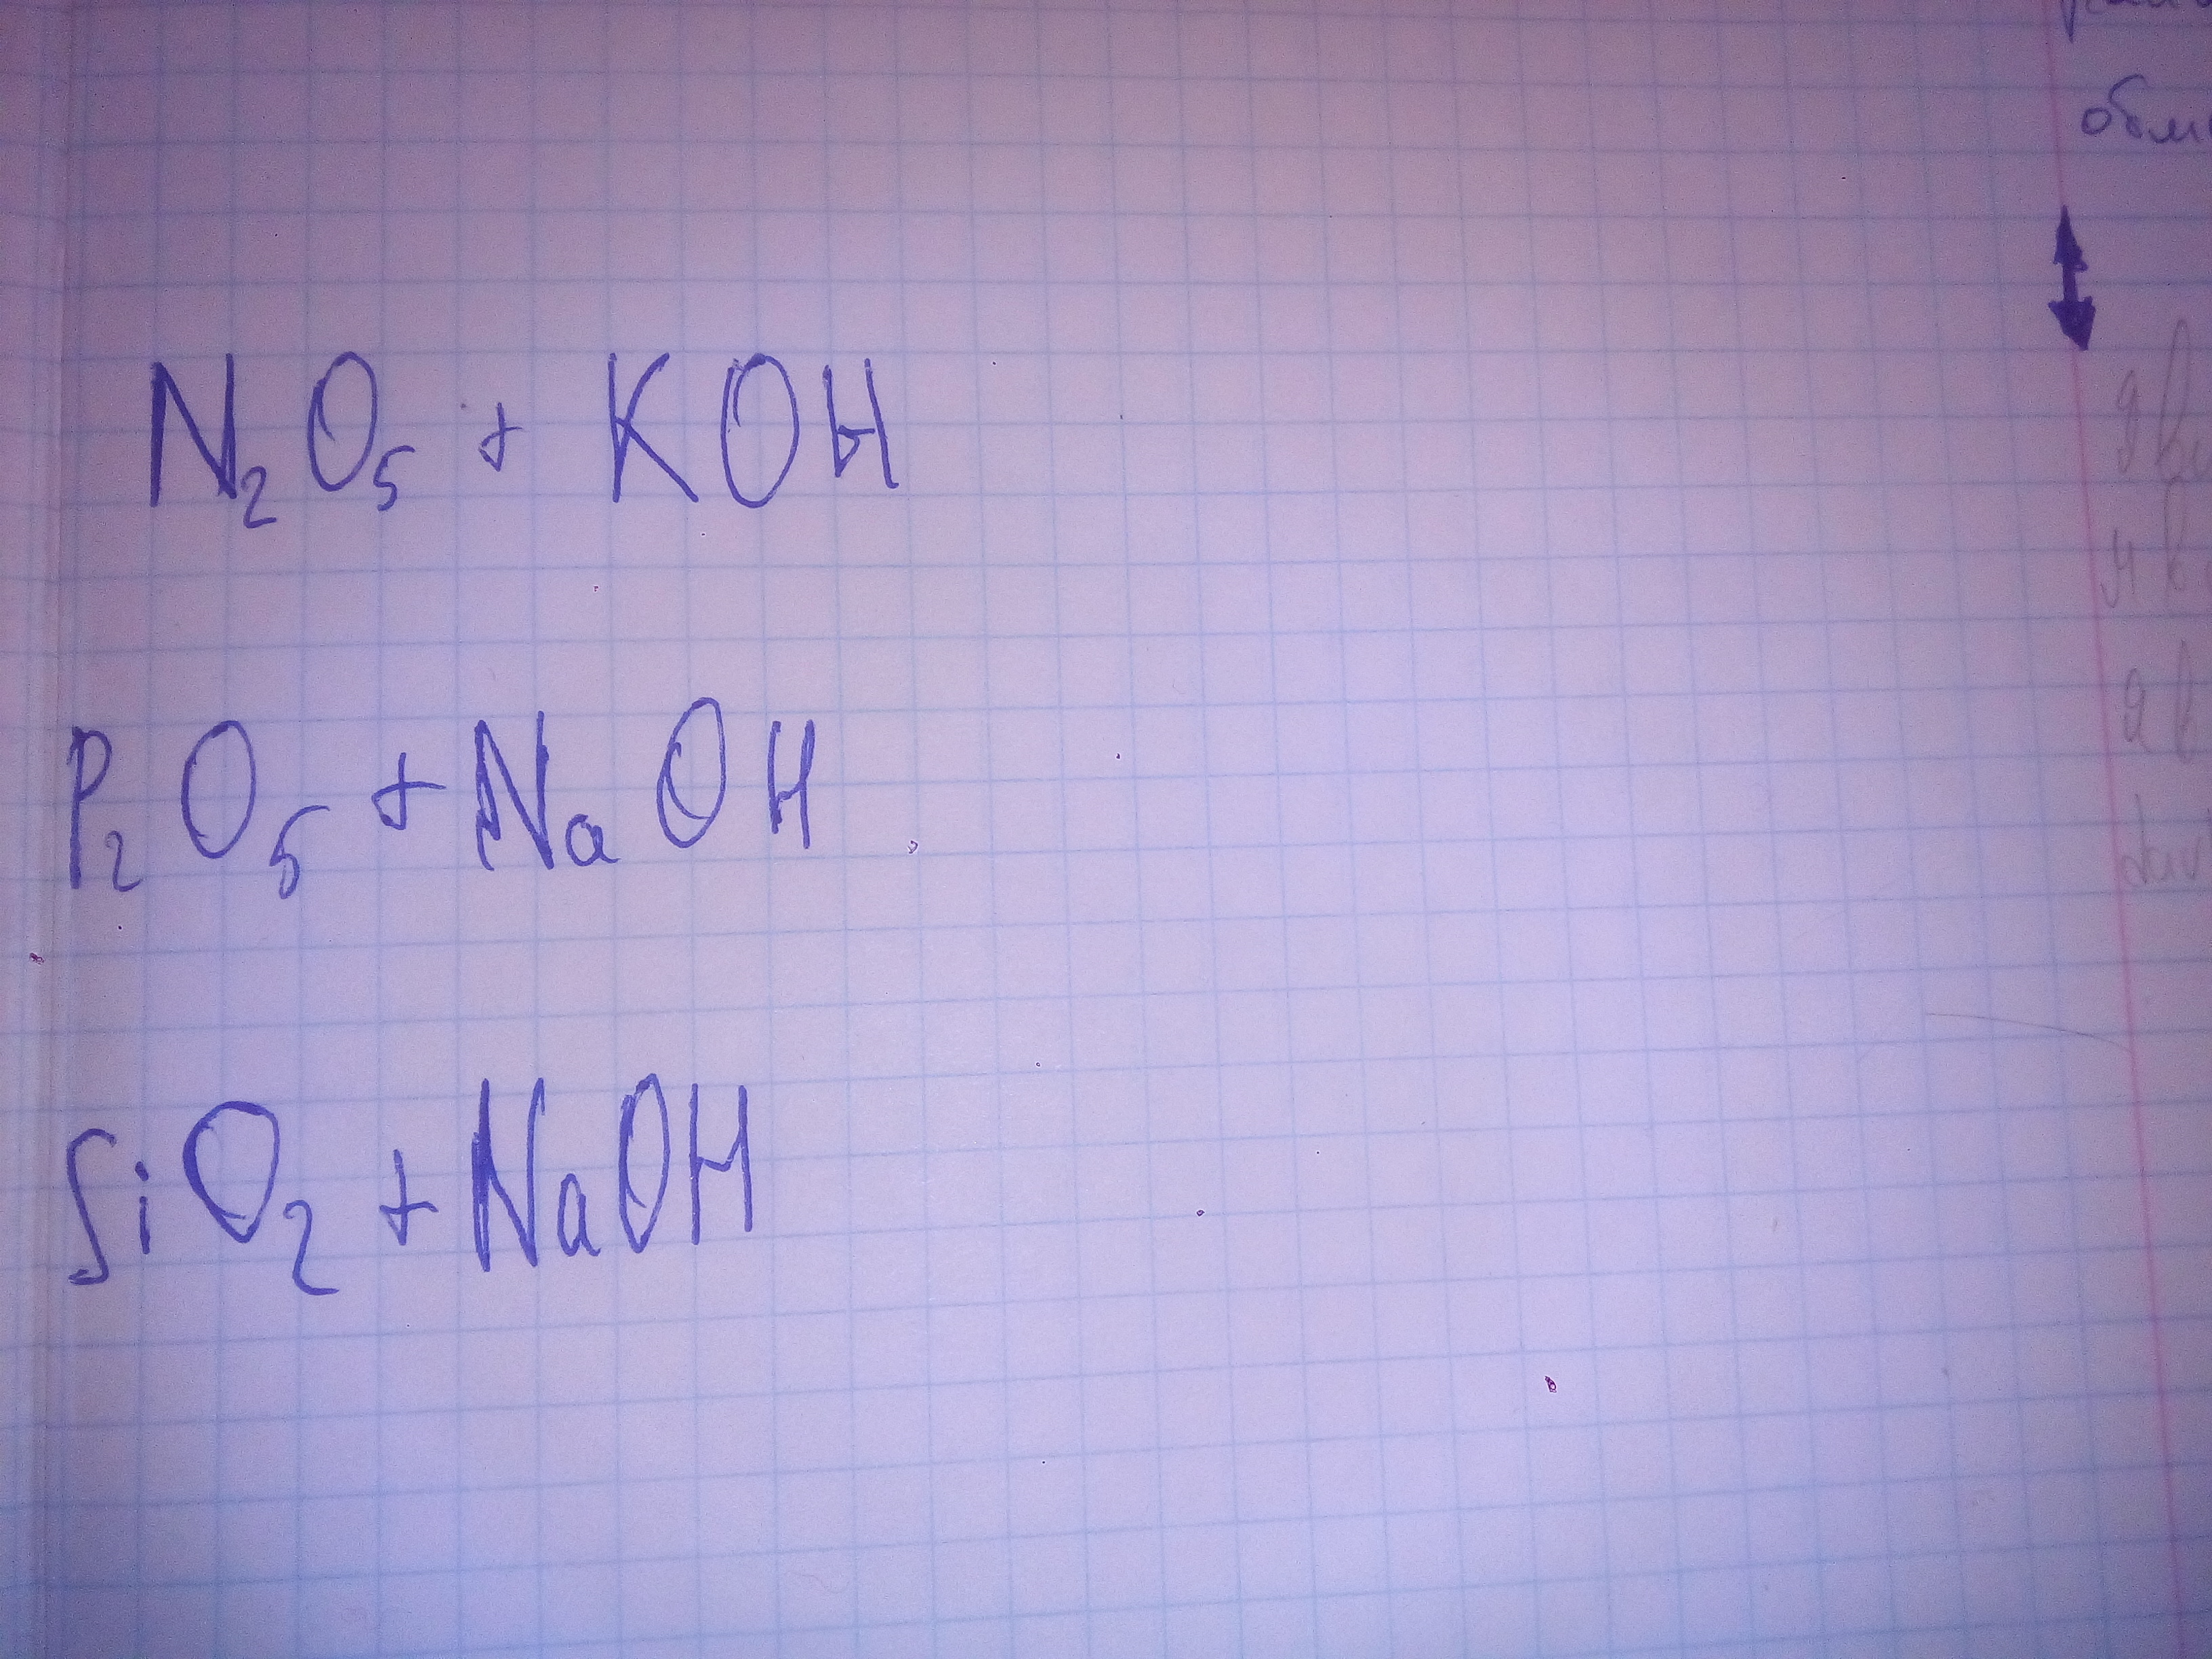 N₂O₅ + KOH
P₂O₅ + NaOH
SiO₂ + NaOH